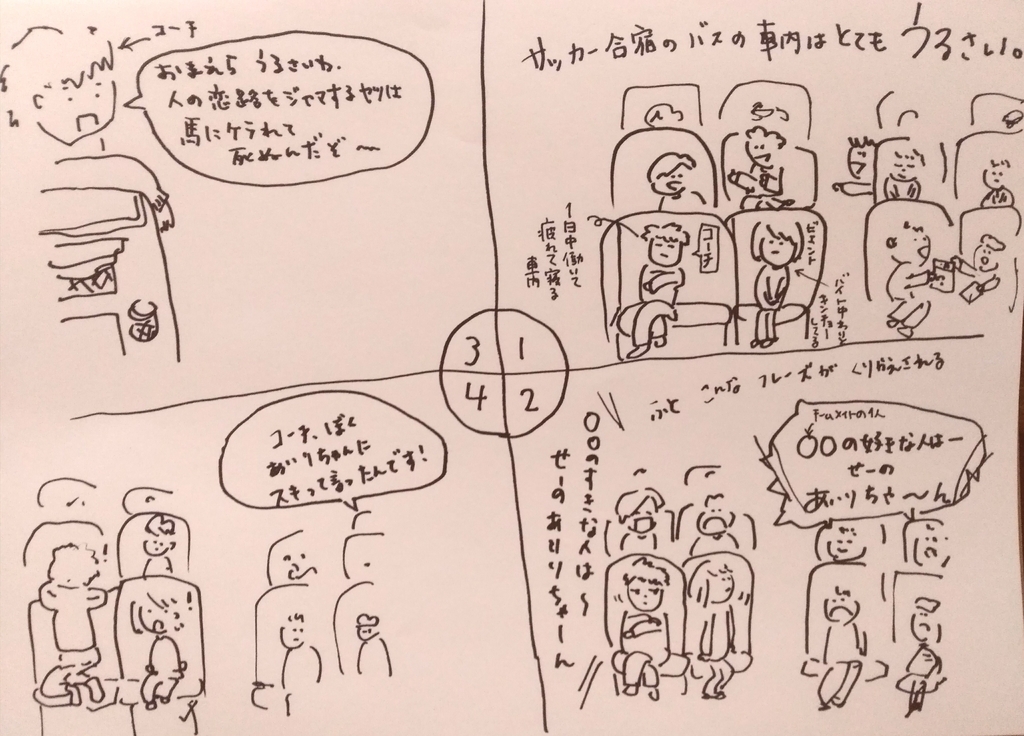 サッカー合宿のバスの車内はとてもうるさい。
1日中働いて
疲れて寝る
車内
コーチ
ビェント
バイト中わりと
キンチョー
してる
1
2
3
4
ふと こんな フレーズが くりかえされる
チームメイトの1人
○○の好きな人はー
せーの
あいりちゃ〜ん
○○のすきな人は〜
せーのありりちゃーん
コーチ
おまえら うるさいわ、
人の恋路をジャマするヤツは
馬にケラれて
死ぬんだぞ〜
コーチ、ぼく
あいりちゃんに
スキって言ったんです!